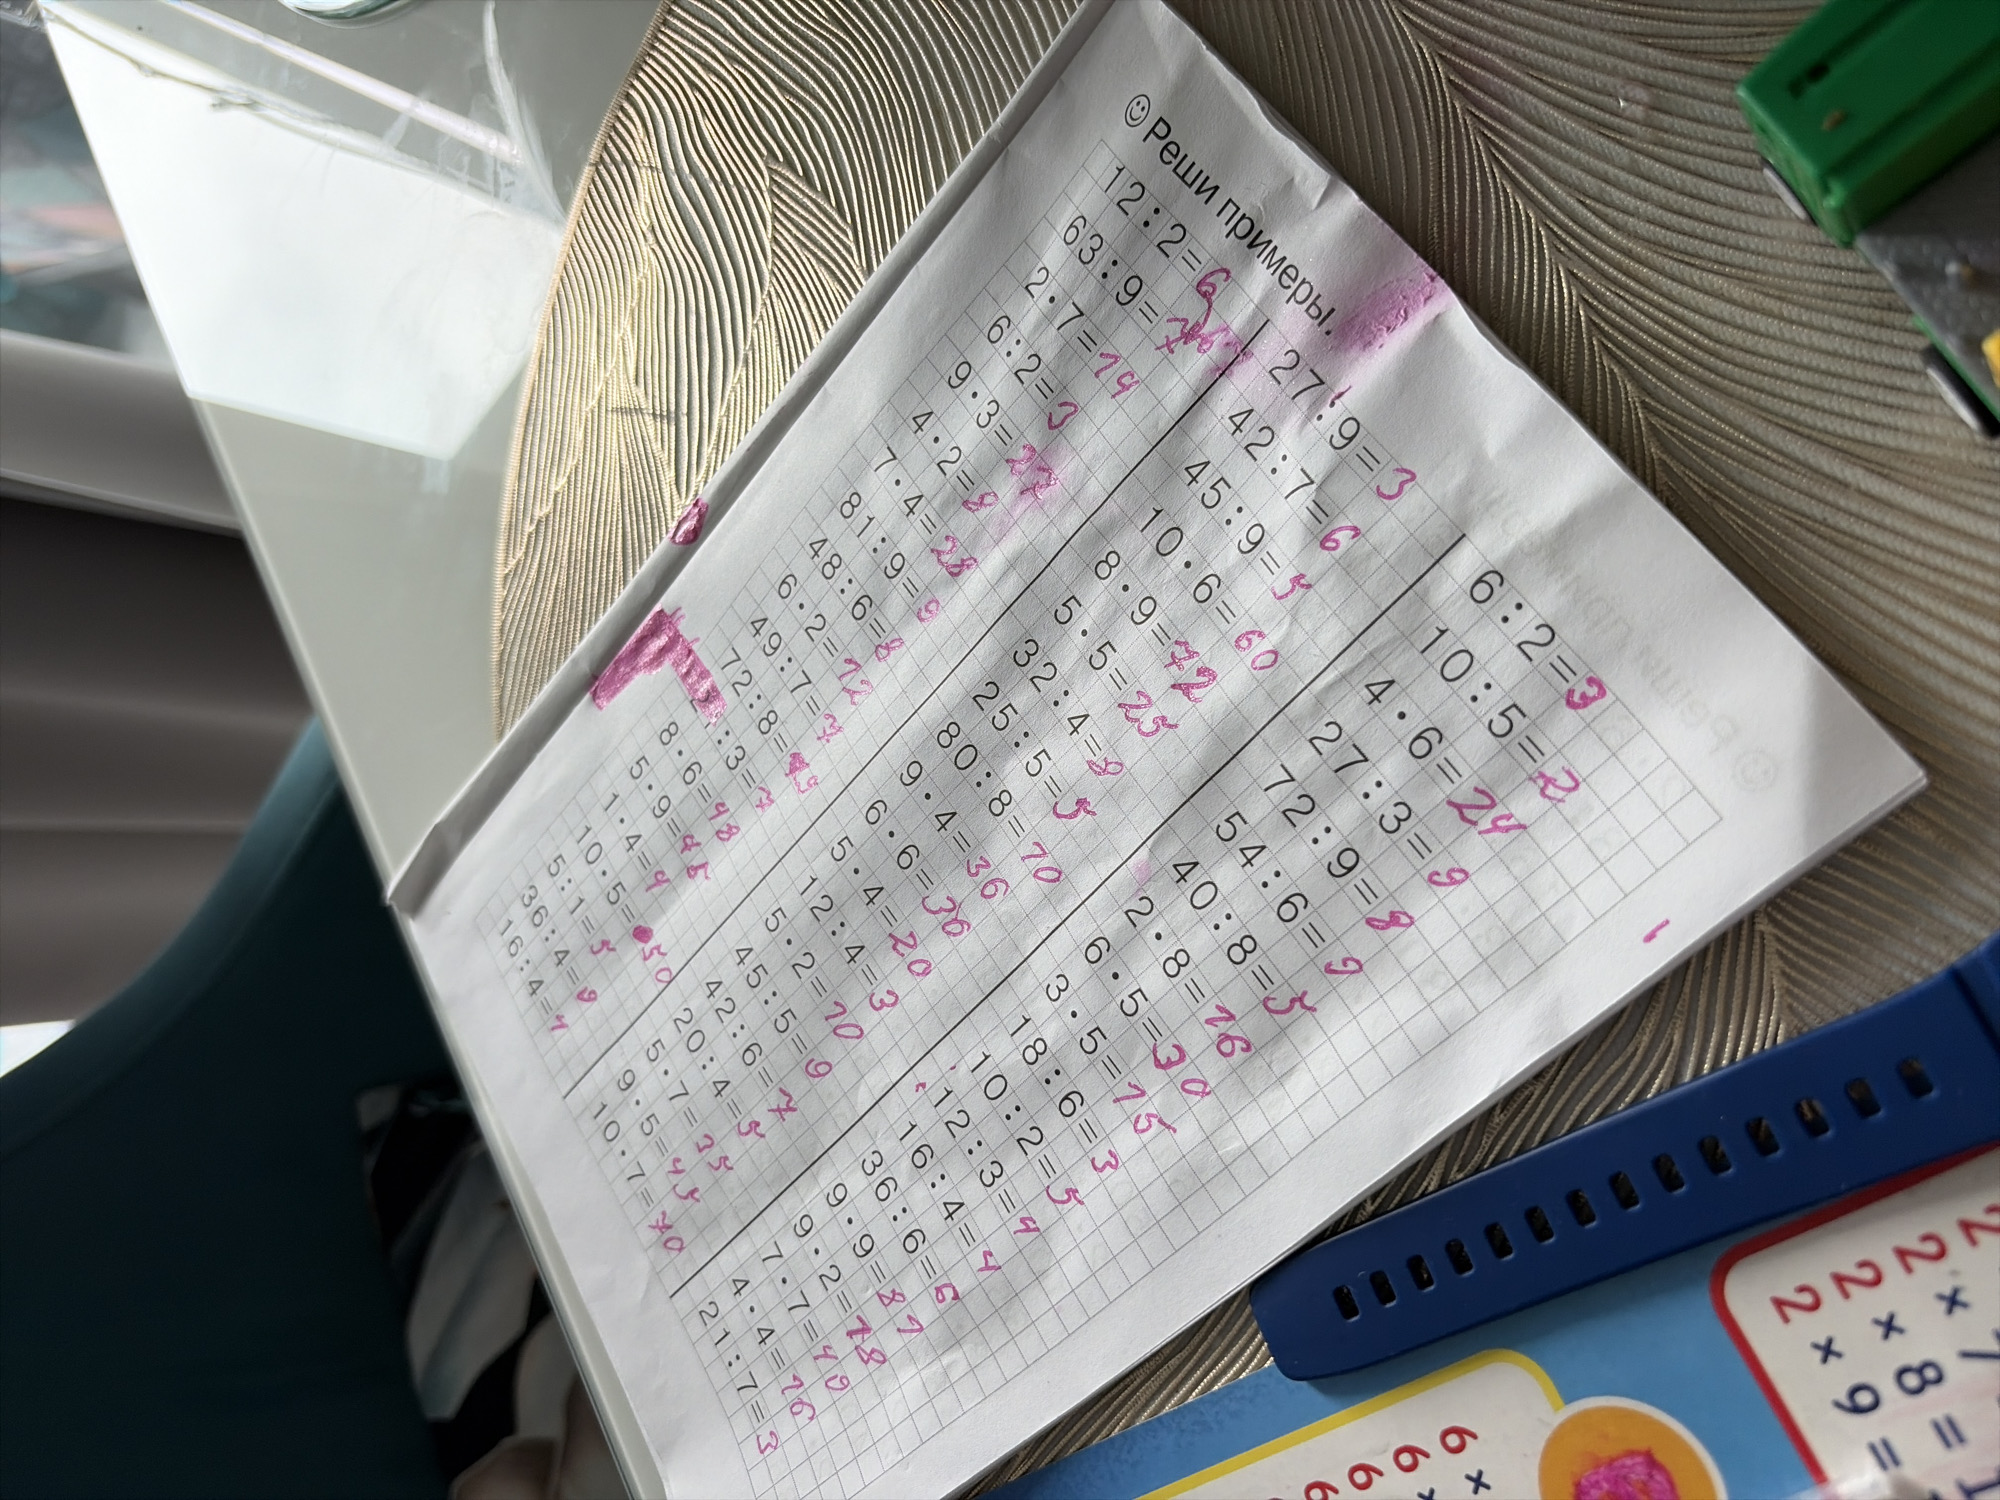 Реши примеры.
12:2=6 27:9=3 6:2=3
63:9=7 42:7=6 10:5=2
2·7=14 45:9=5 4·6=24
6:2=3 10·6=60 27:3=9
9·3=27 8·9=72 72:9=8
4·2=8 5·5=25 54:6=9
7·4=28 32:4=8 40:8=5
81:9=9 25:5=5 2·8=16
48:6=8 80:8=10 6·5=30
6·2=12 9·4=36 3·5=15
49:7=7 6·6=36 18:6=3
72:8= 5·4=20 10:2=5
:3=7 12:4=3 12:3=4
8·6=48 5·2=10 16:4=4
5·9=45 45:5=9 36:6=6
1·4=4 42:6=7 9·9=81
10·5=50 20:4=5 9·2=18
5:1=5 5·7=35 7·7=49
36:4=9 9·5=45 4·4=16
16:4=4 10·7=70 21:7=3
2 x 7
2 x 8 =
2 x 9 =
6 x
6
6